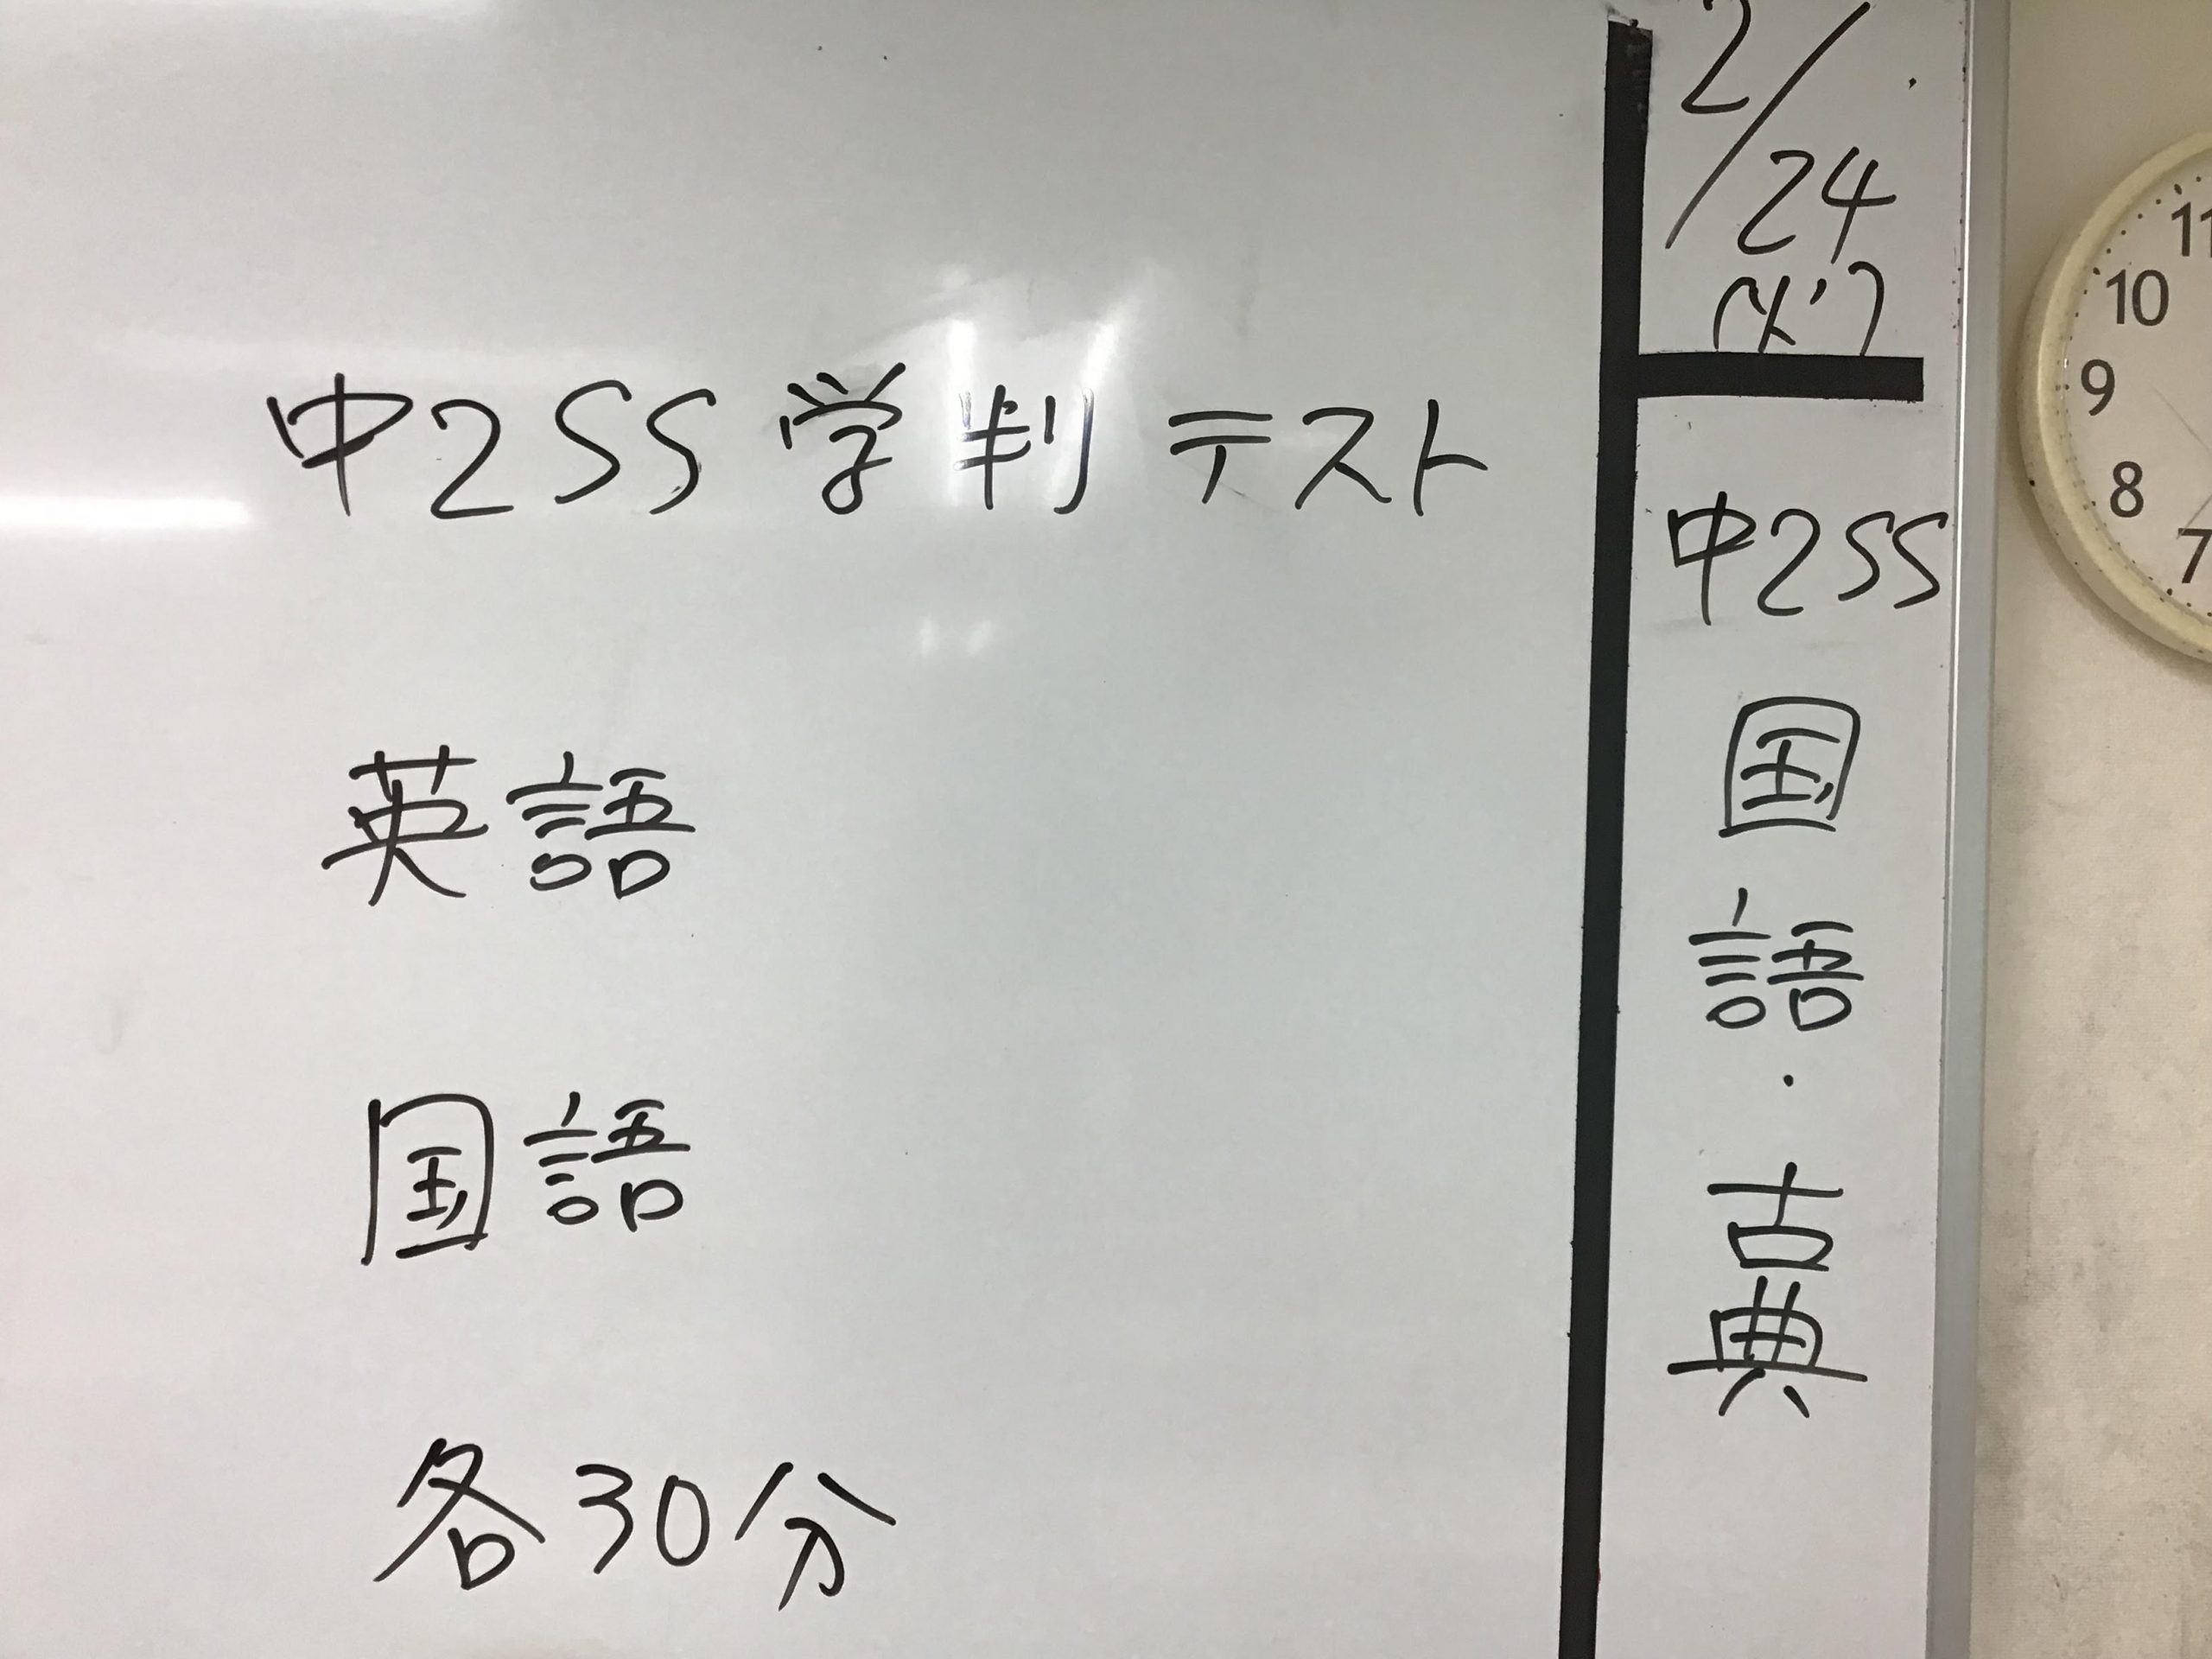 中2SS 学判テスト
英語
国語
各30分
2/24
中2SS
国語・古典
11
10
9
8
7